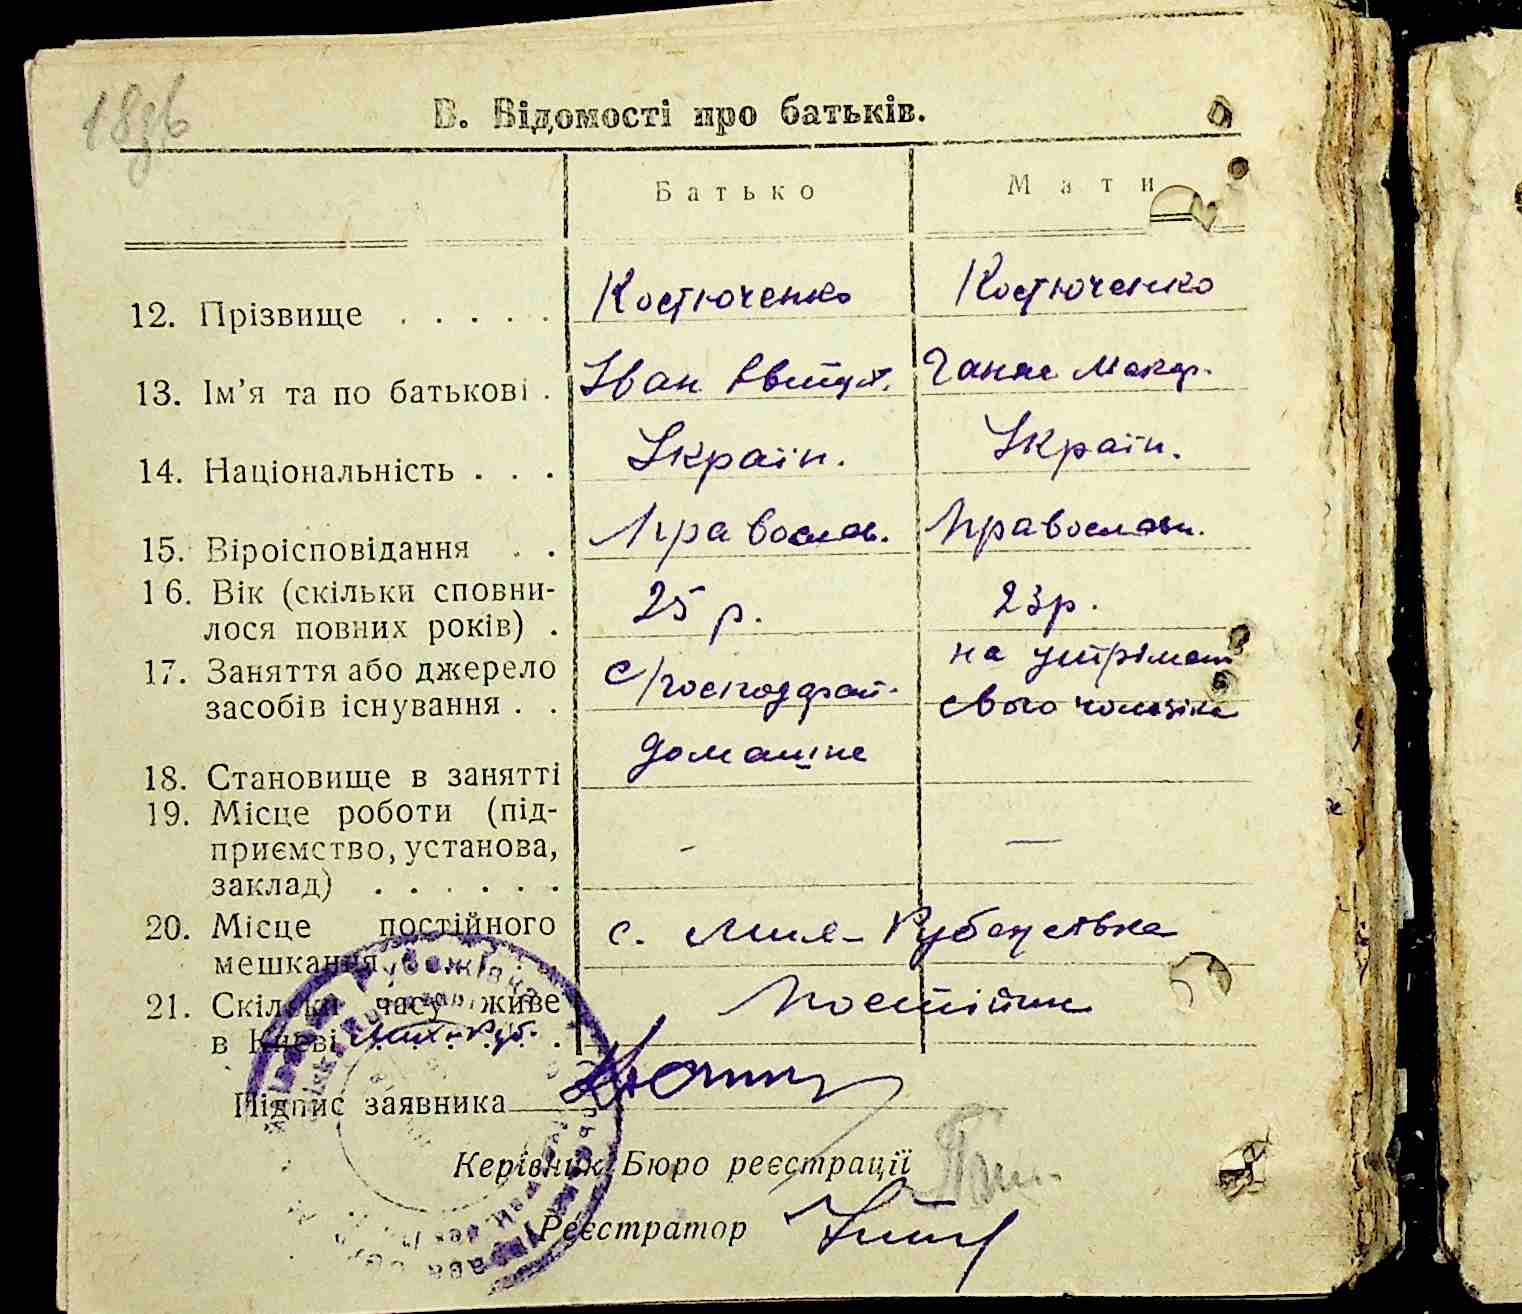 В. Відомості про батьків.
Батько Мати
12. Прізвище . . . . . Костюченко Костюченко
13. Ім'я та по батькові . Іван Ганна Макар.
14. Національність . . . Україн. Україн.
15. Віроісповідання . . Православ. Православн.
16. Вік (скільки сповни- 25 р. 23 р.
лося повних років) .
17. Заняття або джерело на утріман
засобів існування . . с/господар свого чоловіка
домашнє
18. Становище в занятті
19. Місце роботи (під-
приємство, установа, - —
заклад) . . . . . .
20. Місце постійного с. Рубежівка
мешкання
21. Скільки часу живе постійно
в Києві
Підпис заявника
Керівник Бюро реєстрації
Реєстратор